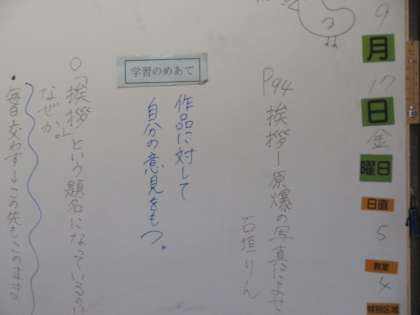 9
月
17
日
金
曜日
日直
5
教室
4
特別区域
P94 挨拶ー原爆の写真によせて
石垣りん
学習のめあて
作品に対して
自分の意見をもつ。
○「挨拶」という題名になっているのは
なぜか。
・毎日交わす→この先も